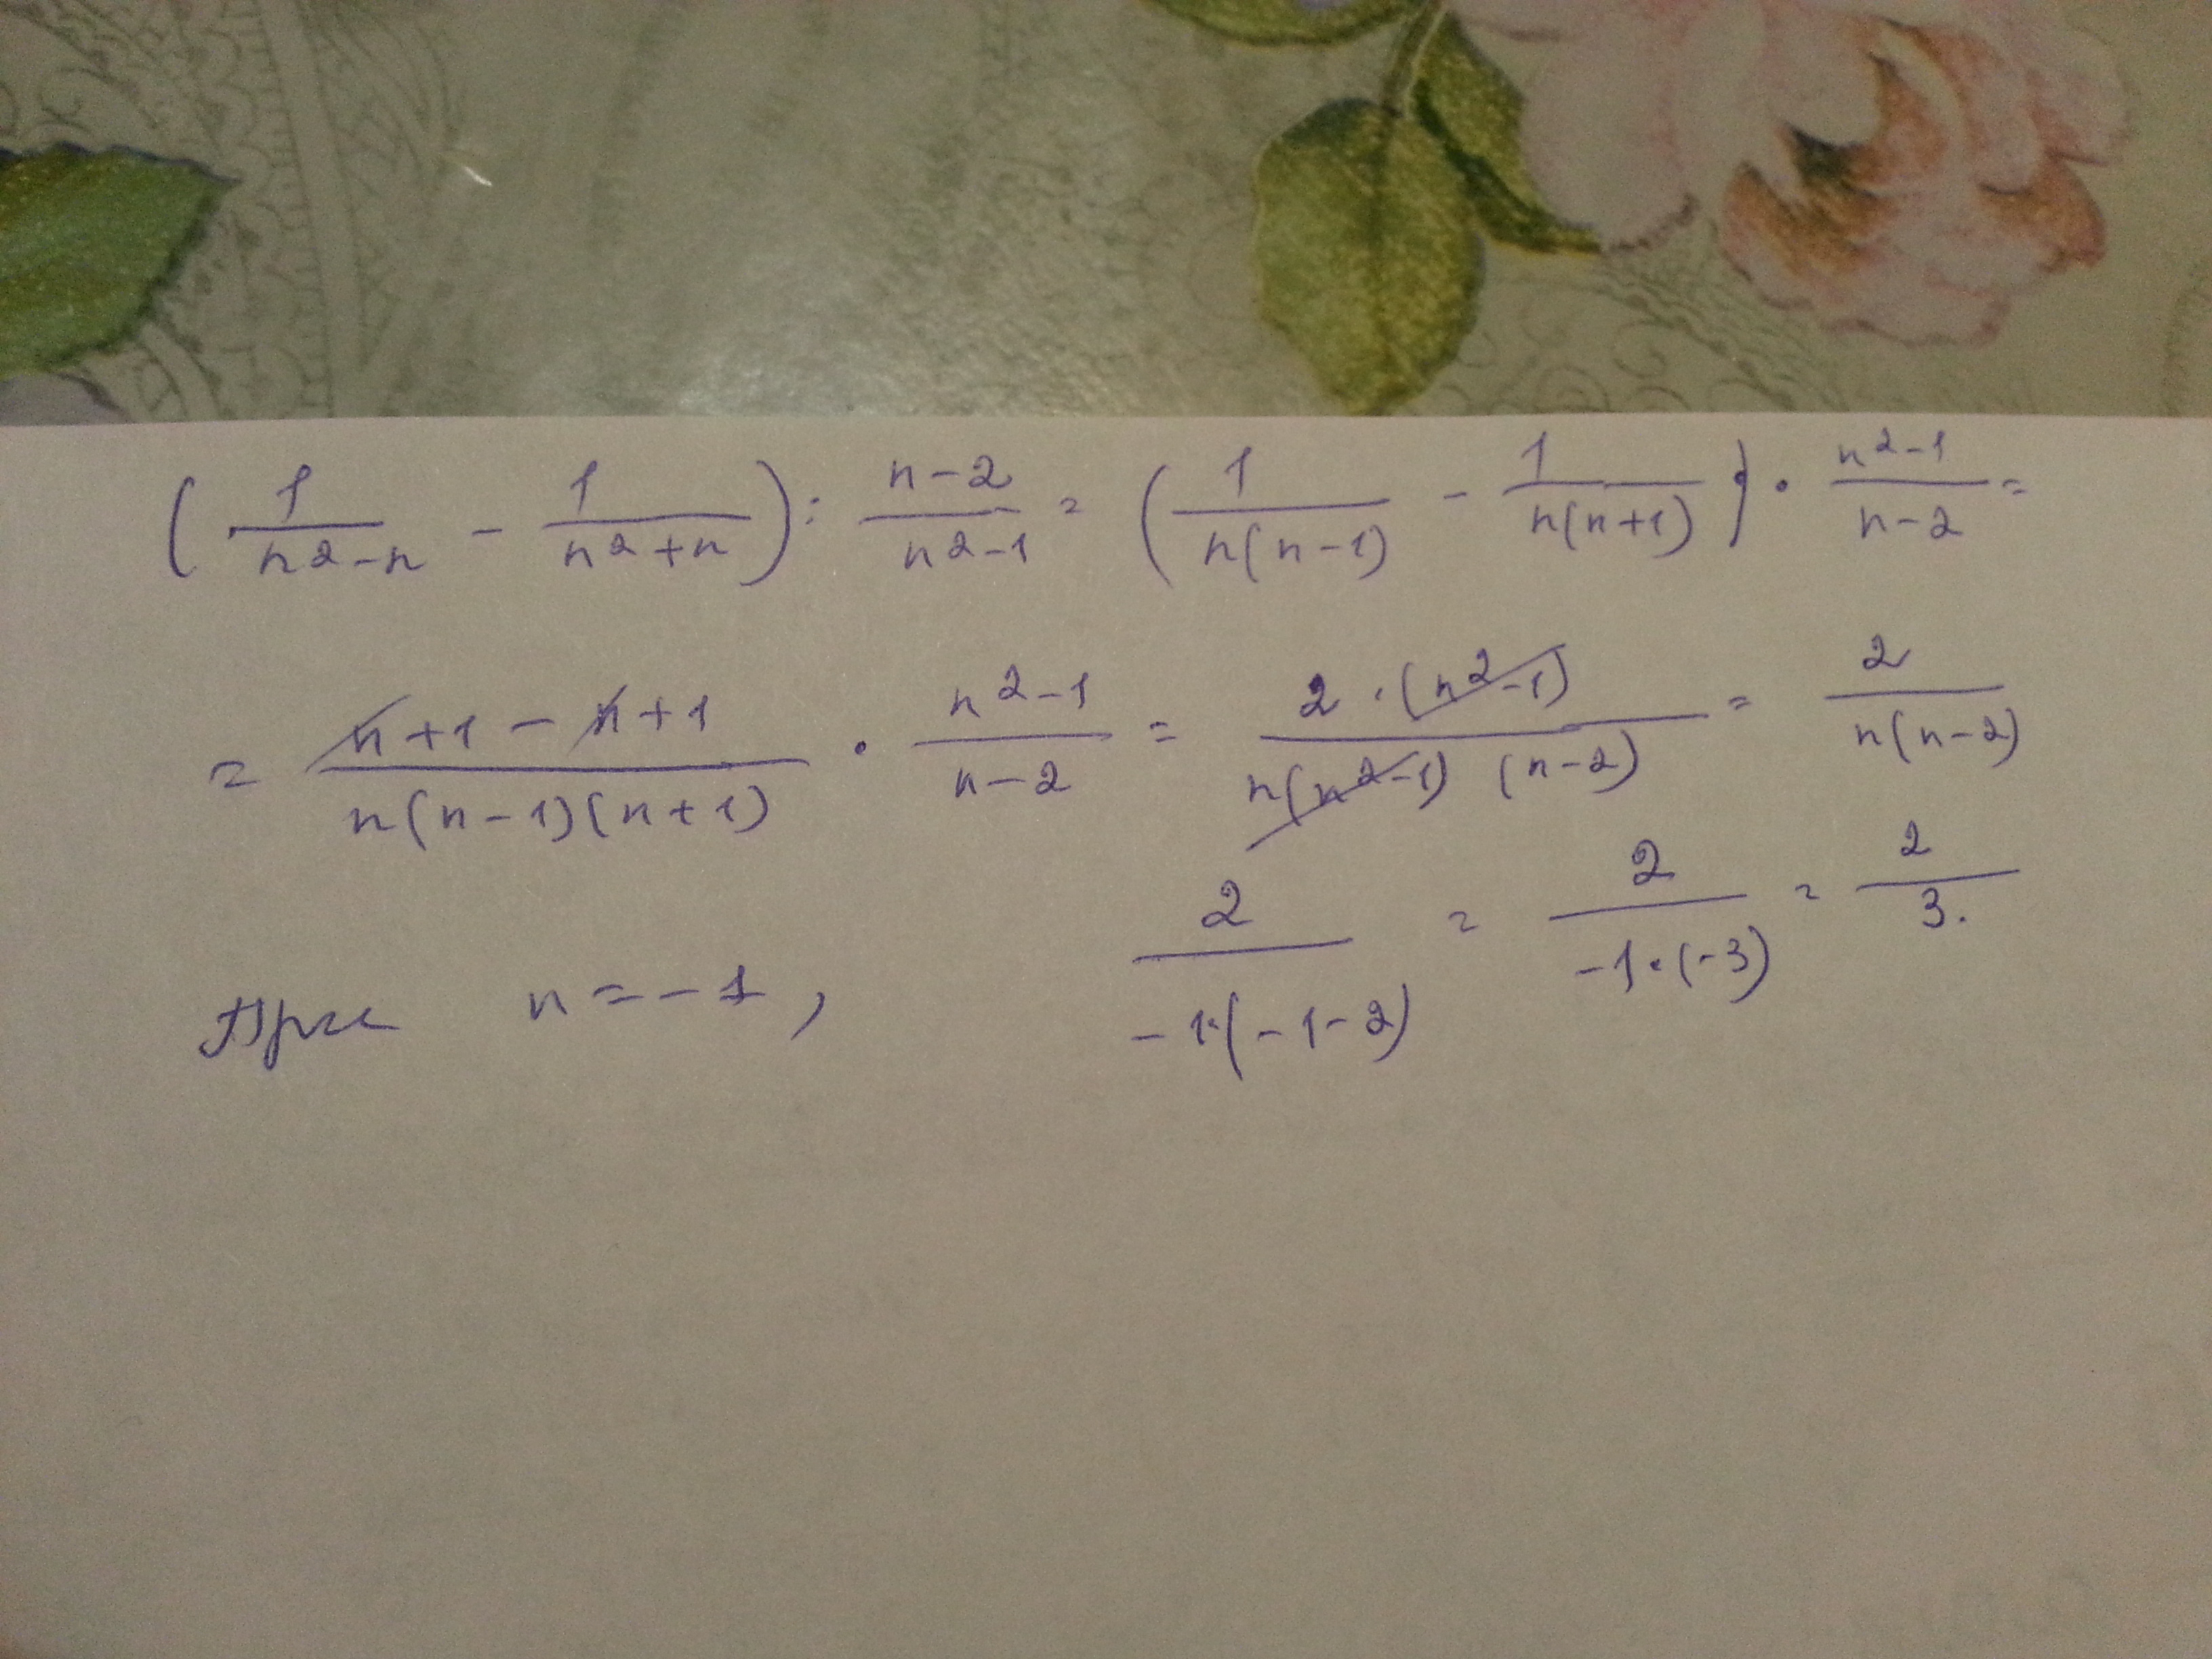 (1/(n²-n) - 1/(n²+n)) : (n-2)/(n²-1) = (1/(n(n-1)) - 1/(n(n+1))) · (n²-1)/(n-2) =
= (n+1-n+1)/(n(n-1)(n+1)) · (n²-1)/(n-2) = (2·(n²-1))/(n(n²-1)(n-2)) = 2/(n(n-2))
При n=-1, 2/(-1·(-1-2)) = 2/(-1·(-3)) = 2/3.